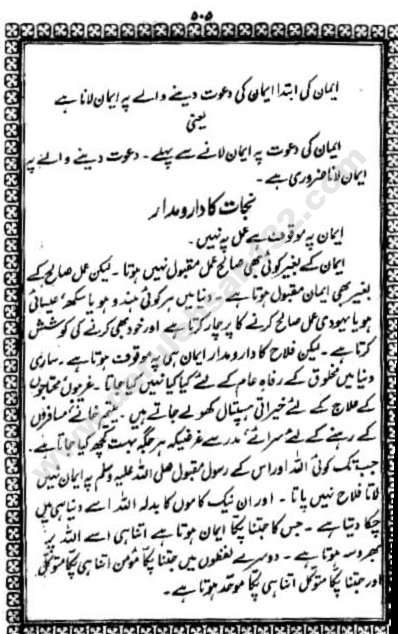 ۵۰۵
ایمان کی ابتدا ایمان کی دعوت دینے والے پہ ایمان لانا ہے
یعنی
ایمان کی دعوت پہ ایمان لانے سے پہلے ۔ دعوت دینے والے پہ
ایمان لانا ضروری ہے ۔
نجات کا دارومدار
ایمان پہ موقوف ہے عمل پہ نہیں ۔
ایمان کے بغیر کوئی بھی صالح عمل مقبول نہیں ہوتا ۔ لیکن عمل صالح کے
بغیر بھی ایمان مقبول ہوتا ہے ۔ دنیا میں ہر کوئی ہندو ہو یا سکھ ‘ عیسائی
ہو یا یہودی عمل صالح کرنے کا پرچار کرتا ہے اور خود بھی کرنے کی کوشش
کرتا ہے ۔ لیکن فلاح کا دارومدار ایمان ہی پہ موقوف ہوتا ہے ۔ ساری
دنیا میں مخلوق کے رفاہِ عام کے لئے کیا کیا نہیں کیا جاتا ۔ غریبوں محتاجوں
کے علاج کے لئے خیراتی ہسپتال کھولے جاتے ہیں ۔ یتیم خانے ‘ مسافروں
کے رہنے کے لئے سرائے ‘ مدرسے غرضیکہ ہر جگہ بہت کچھ کیا جاتا ہے ۔
جب تک کوئی اللہ اور اس کے رسول مقبول صلی اللہ علیہ وسلم پہ ایمان نہیں
لاتا فلاح نہیں پاتا ۔ اور ان نیک کاموں کا بدلہ اللہ اسے دنیا ہی میں
چکا دیتا ہے ۔ جس کا جتنا پکا ایمان ہوتا ہے اتنا ہی اسے اللہ پر
بھروسہ ہوتا ہے ۔ دوسرے لفظوں میں جتنا پکا مومن اتنا ہی پکا متوکل
اور جتنا پکا متوکل اتنا ہی پکا موحد ہوتا ہے ۔